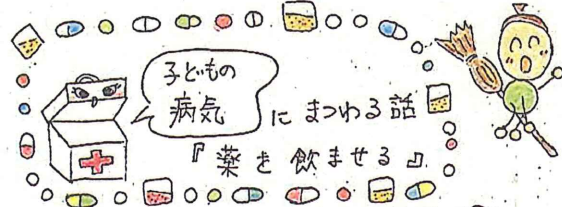 子どもの
病気にまつわる話
『薬を飲ませる』